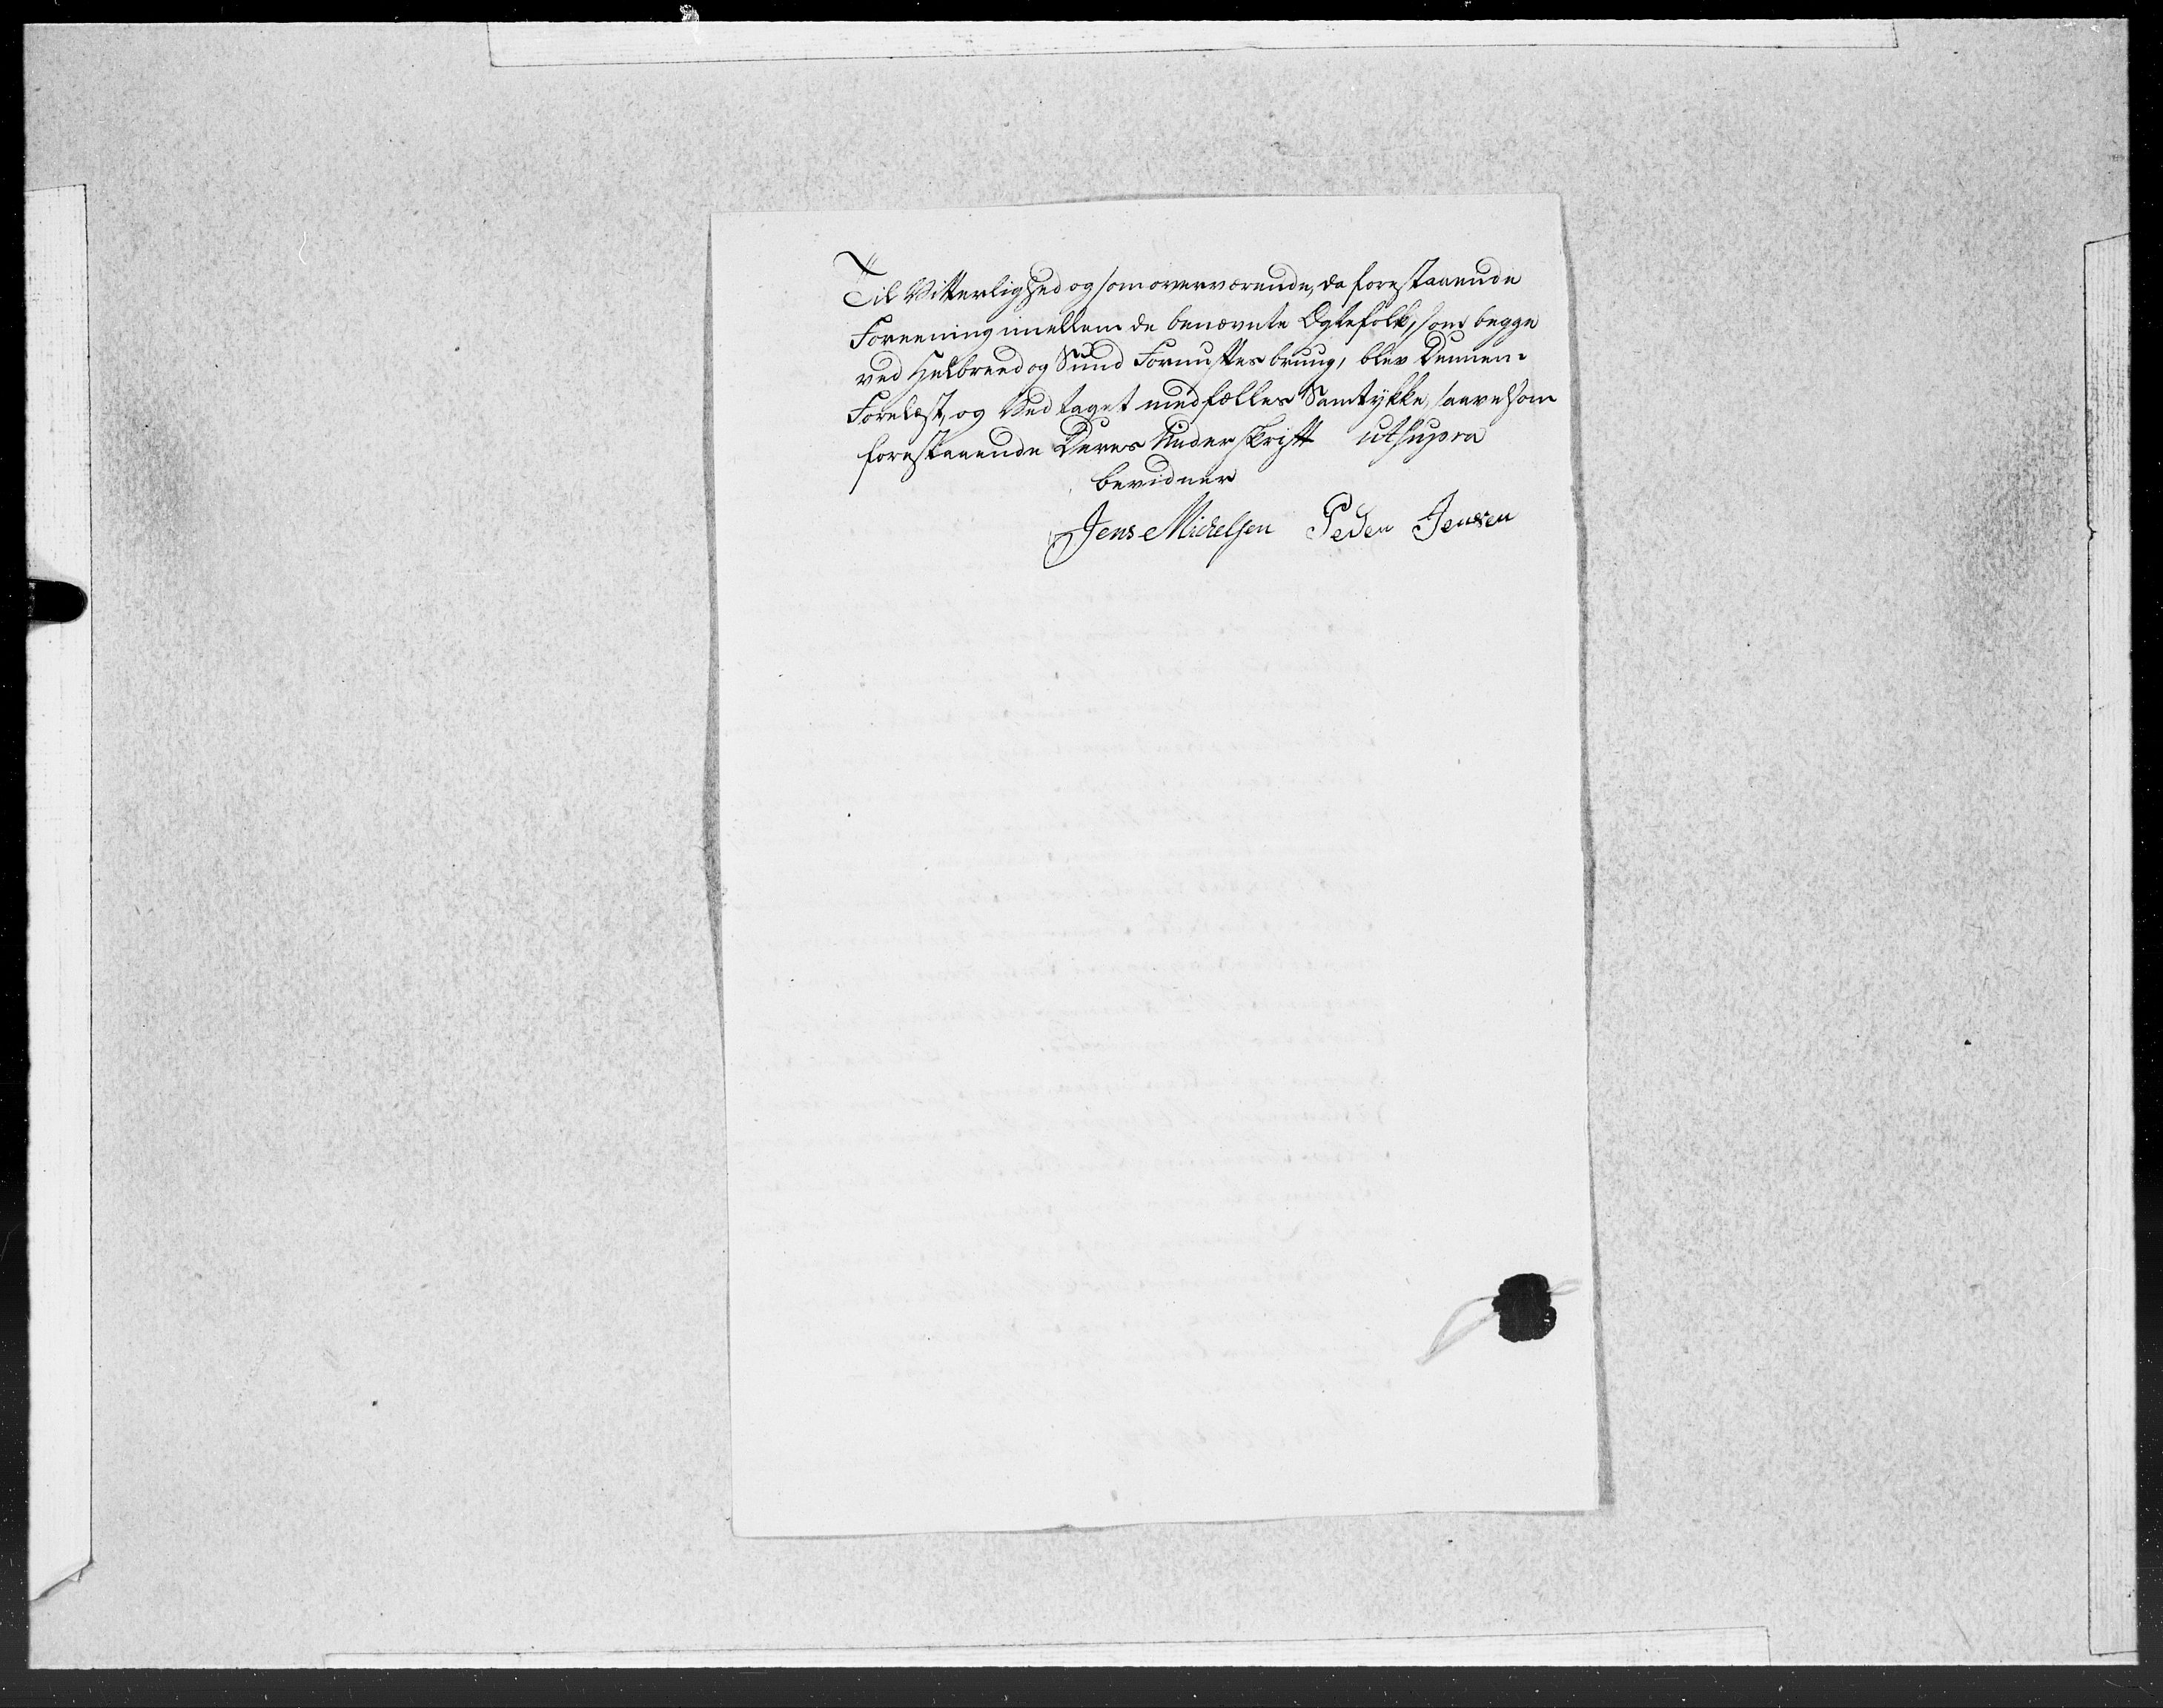 Til Vitterlighed og som overværende, da forestaaende
Foreening imellem de benævnte Egtefolk, som begge
ved Helbreed og Sund Fornuftes brug, blev Dennem
Forelæst, og Vedtaget med fælles Samtykke, saavelsom
forestaaende Deres Underskrift utsupra
bevidner
Jens Michelsen Peder Jensen